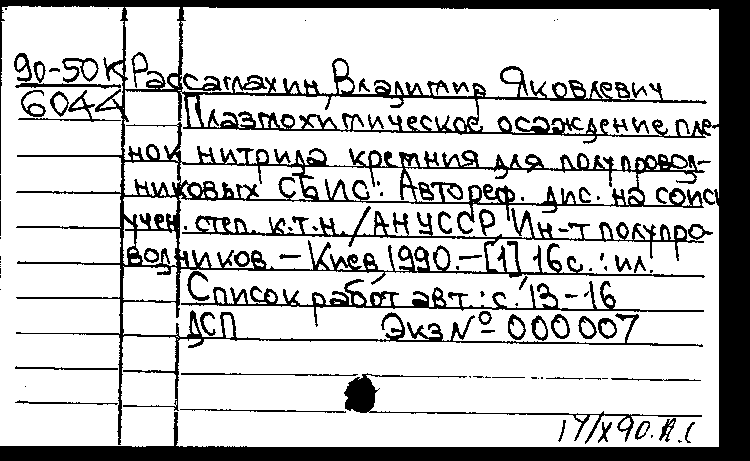 90-50К Рассамахин, Владимир Яковлевич
6044 Плазмохимическое осаждение пле-
нок нитрида кремния для полупровод-
никовых СБИС: Автореф. дис. на соиск
учен. степ. к.т.н. / АН УССР, Ин-т полупро-
водников. – Киев, 1990. – [1], 16 с. : ил.
Список работ авт.: с. 13-16
ДСП Экз № 000007